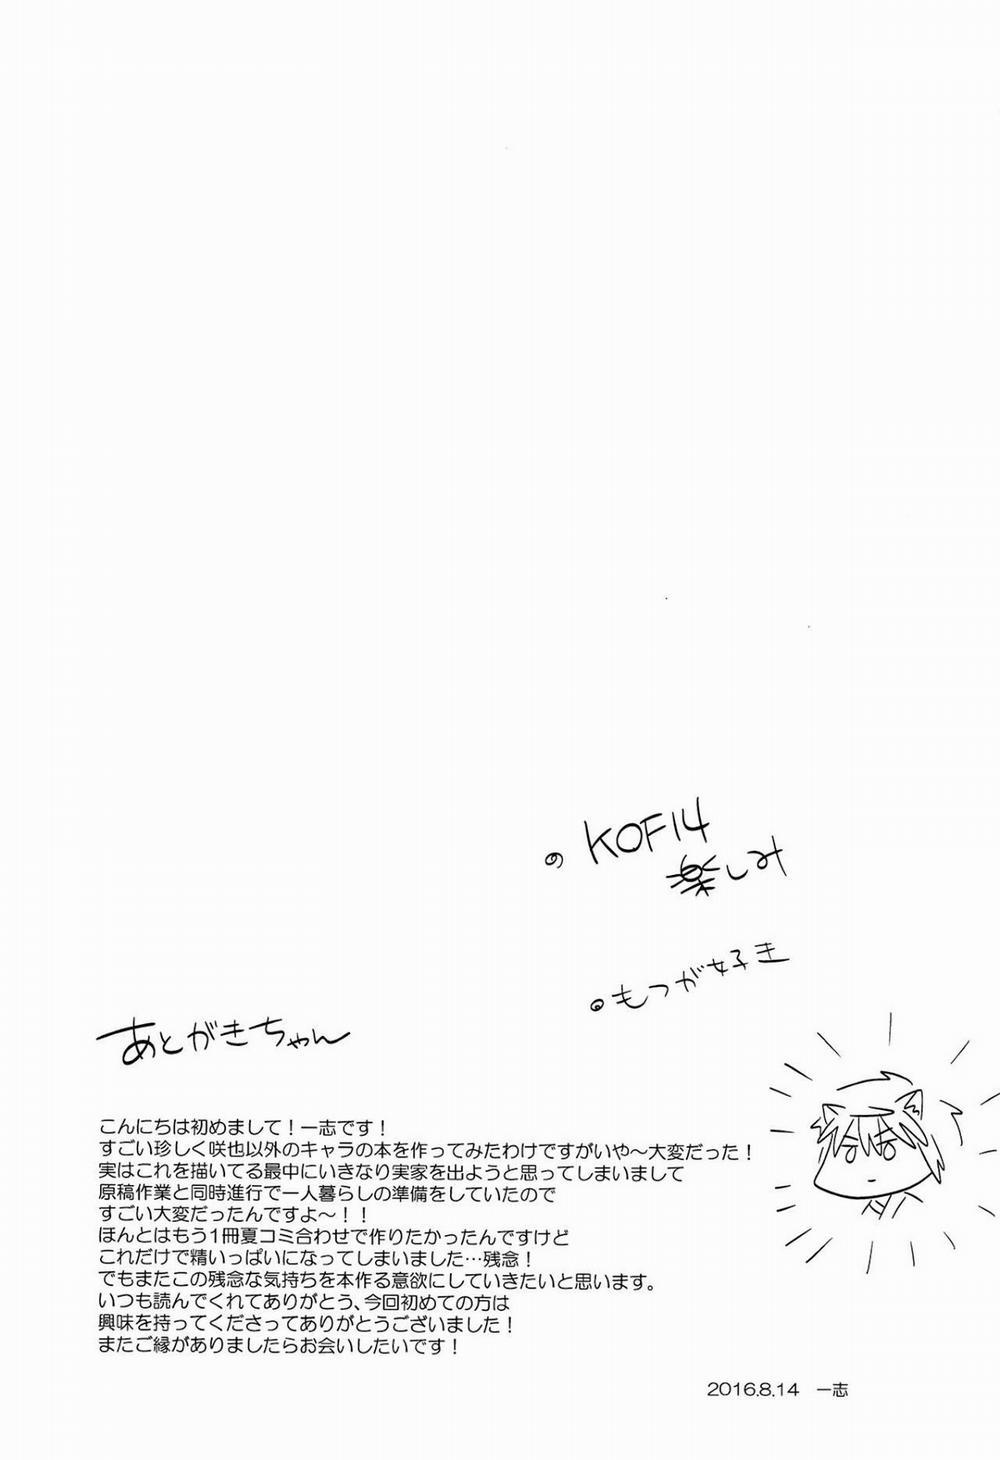 KOF14
楽しみ
もつが好き
あとがきちゃん
こんにちは初めまして！一志です！
すごい珍しく咲也以外のキャラの本を作ってみたわけですがいや～大変だった！
実はこれを描いてる最中にいきなり実家を出ようと思ってしまいまして
原稿作業と同時進行で一人暮らしの準備をしていたので
すごい大変だったんですよ～！！
ほんとはもう1冊夏コミ合わせで作りたかったんですけど
これだけで精いっぱいになってしまいました…残念！
でもまたこの残念な気持ちを本作る意欲にしていきたいと思います。
いつも読んでくれてありがとう、今回初めての方は
興味を持ってくださってありがとうございました！
またご縁がありましたらお会いしたいです！
2016.8.14　一志